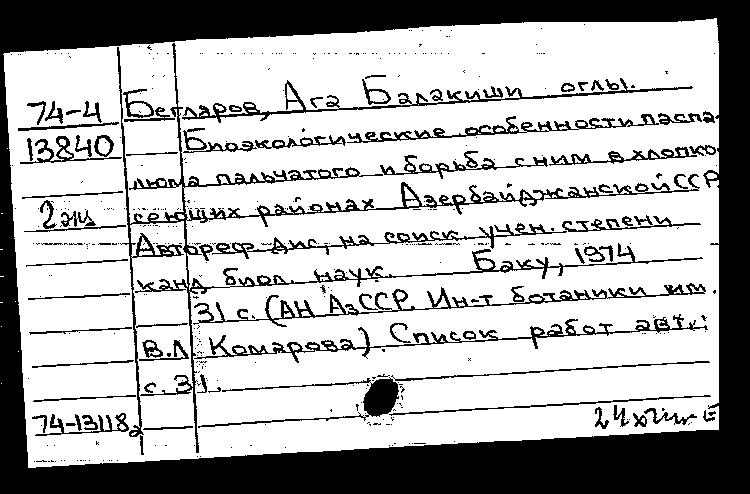 74-4 Бегляров, Ага Балакиши оглы.
13840 Биоэкологические особенности паспа-
люма пальчатого и борьба с ним в хлопко-
2 экз сеющих районах Азербайджанской ССР.
Автореф. дис, на соиск. учен. степени
канд биол. наук. Баку, 1974
31 с. (АН АзССР. Ин-т ботаники им.
В.Л Комарова). Список работ авт.:
с. 31.
74-13118